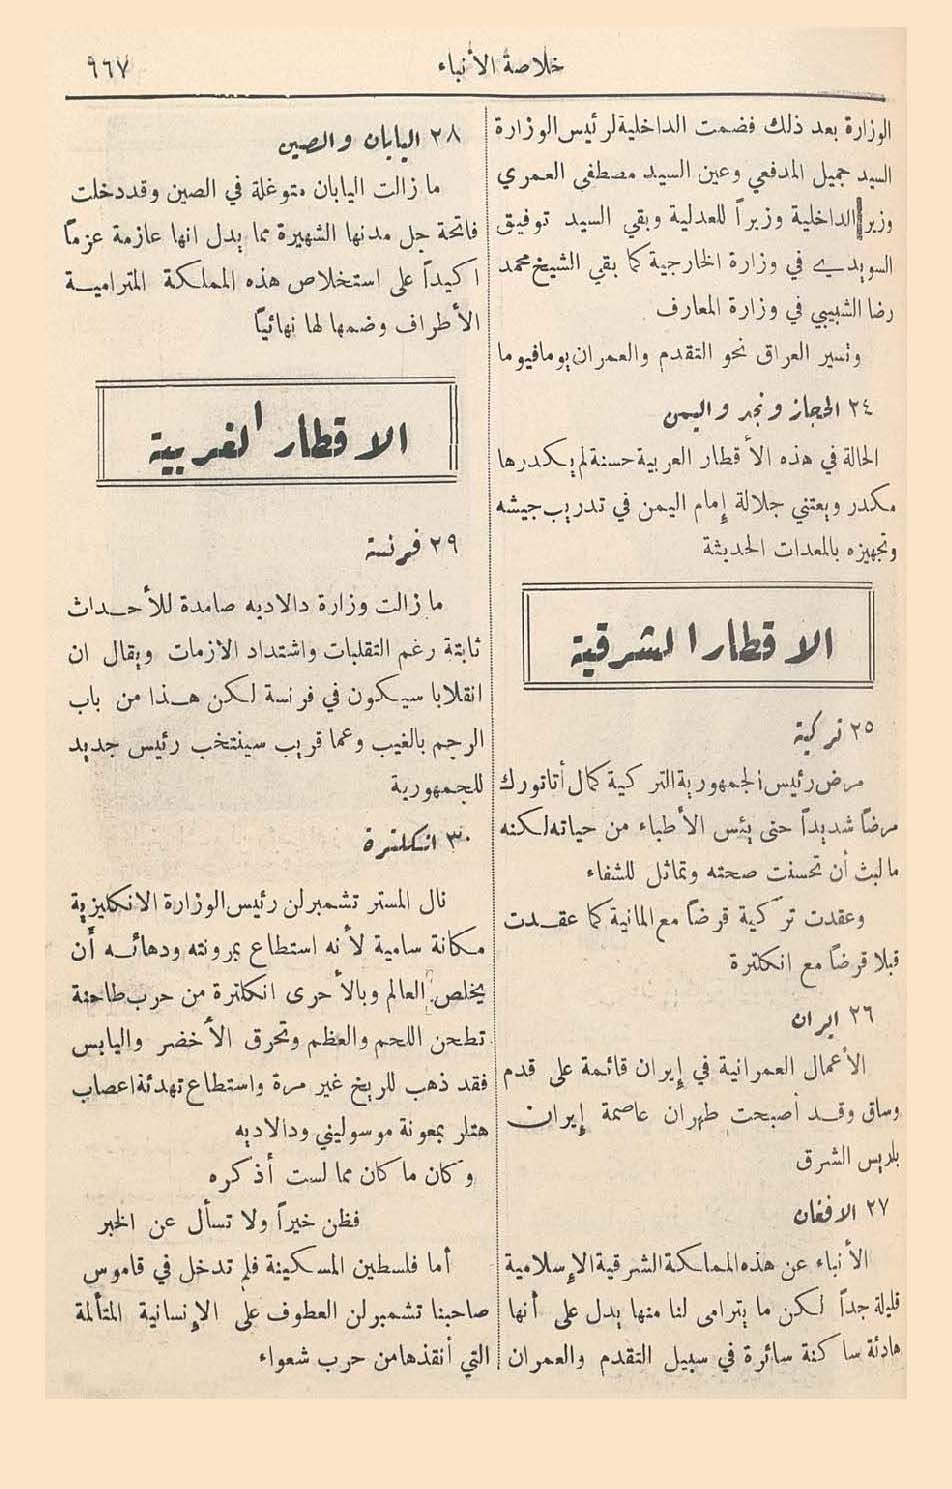 خلاصة الأنباء
٩٦٧
الوزارة بعد ذلك فضمت الداخلية لرئيس الوزارة
السيد جميل المدفعي وعين السيد مصطفى العمري
وزير الداخلية وزيراً للعدلية وبقي السيد توفيق
السويدي في وزارة الخارجية كما بقي الشيخ محمد
رضا الشبيبي في وزارة المعارف
وتسير العراق نحو التقدم والعمران يوما فيوما
٢٤ الحجاز ونجد واليمن
الحالة في هذه الأقطار العربية حسنة لم يكدرها
مكدر ويعتني جلالة إمام اليمن في تدريب جيشه
وتجهيزه بالمعدات الحديثة
الاقطار الشرقية
٢٥ تركية
مرض رئيس الجمهورية التركية كمال أتاتورك
مرضاً شديداً حتى يئس الأطباء من حياته لكنه
ما لبث أن تحسنت صحته وتماثل للشفاء
وعقدت تركية قرضاً مع المانية كما عقدت
قبلا قرضاً مع انكلترة
٢٦ ايران
الأعمال العمرانية في إيران قائمة على قدم
وساق وقد أصبحت طهران عاصمة إيران
باريس الشرق
٢٧ الافغان
الأنباء عن هذه المملكة الشرقية الإسلامية
قليلة جداً لكن ما يترامى لنا منها يدل على أنها
هادئة ساكنة سائرة في سبيل التقدم والعمران
٢٨ اليابان والصين
ما زالت اليابان متوغلة في الصين وقد دخلت
فاتحة جل مدنها الشهيرة مما يدل انها عازمة عزماً
اكيداً على استخلاص هذه المملكة المترامية
الأطراف وضمها لها نهائياً
الاقطار الغربية
٢٩ فرنسة
ما زالت وزارة دالاديه صامدة للأحداث
ثابتة رغم التقلبات واشتداد الازمات ويقال ان
انقلابا سيكون في فرنسة لكن هذا من باب
الرجم بالغيب وعما قريب سينتخب رئيس جديد
للجمهورية
٣٠ انكلترة
نال المستر تشمبرلن رئيس الوزارة الانكليزية
مكانة سامية لأنه استطاع بمرونته ودهائه أن
يخلص العالم وبالأحرى انكلترة من حرب طاحنة
تطحن اللحم والعظم وتحرق الأخضر واليابس
فقد ذهب للريخ غير مرة واستطاع تهدئة اعصاب
هتلر بمعونة موسوليني ودالاديه
وكان ما كان مما لست أذكره
فظن خيراً ولا تسأل عن الخبر
أما فلسطين المسكينة فلم تدخل في قاموس
صاحبنا تشمبرلن العطوف على الإنسانية المتألمة
التي أنقذها من حرب شعواء